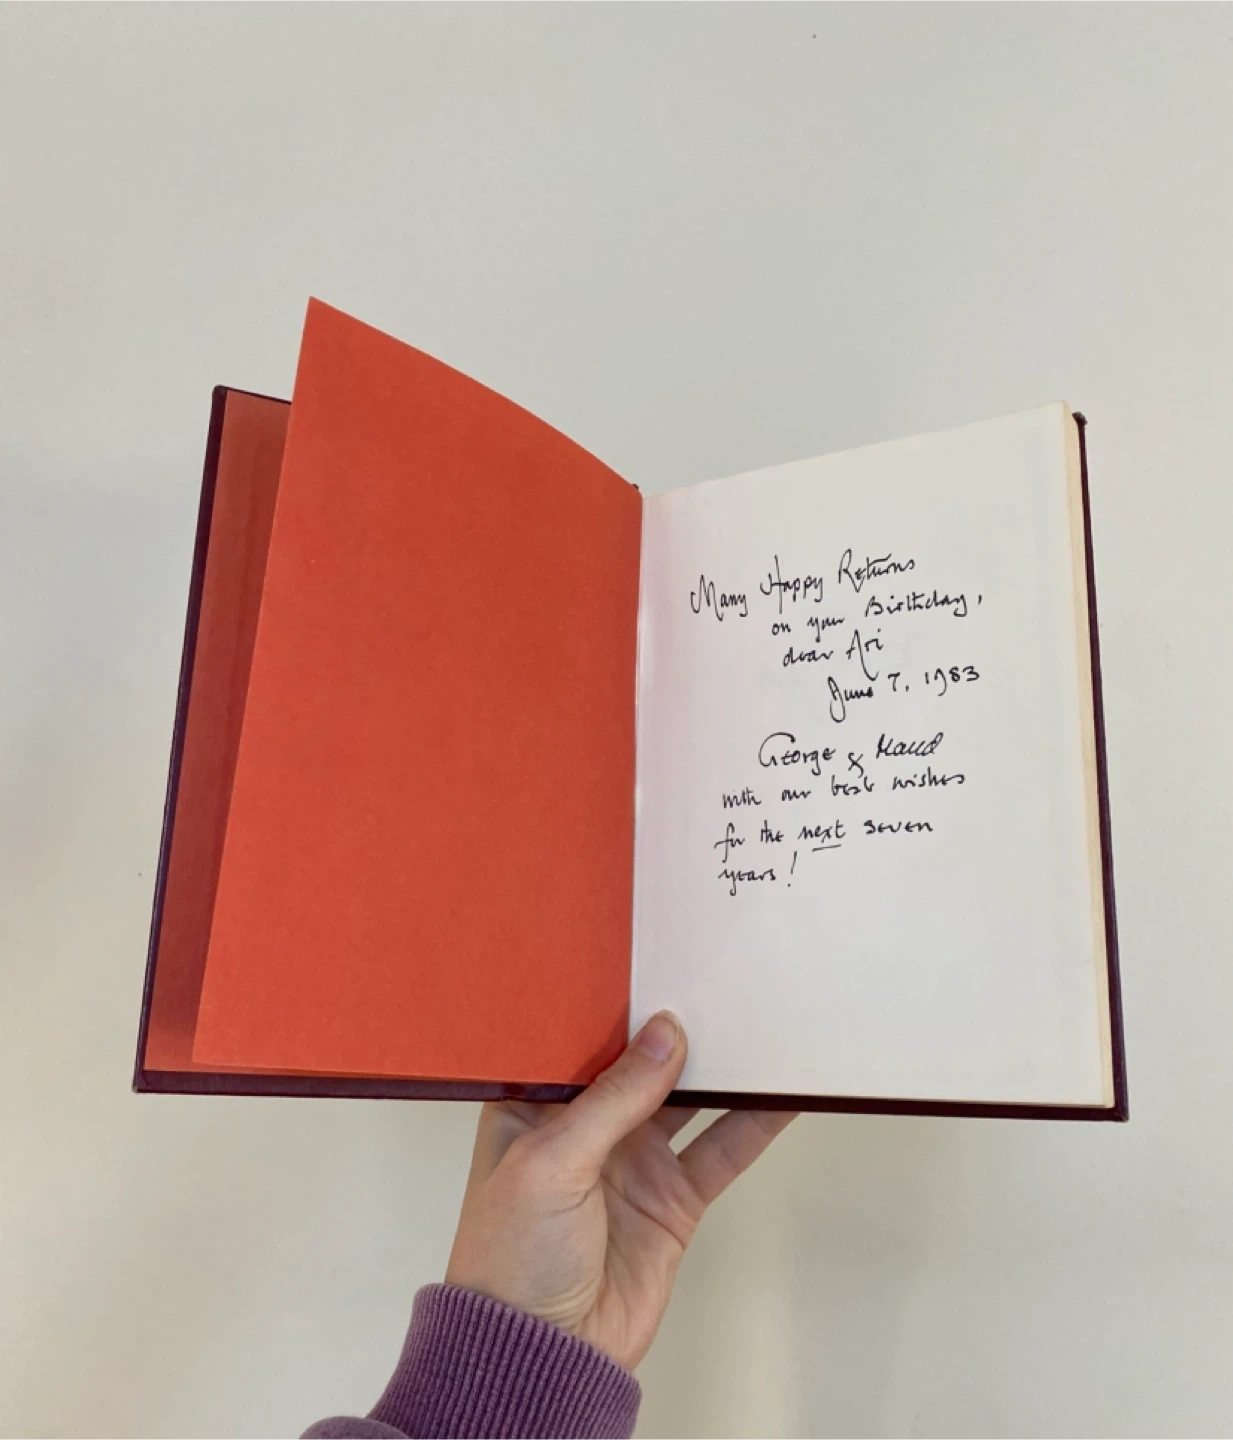 Many Happy Returns
on your Birthday,
dear Ari
June 7, 1983
George & Maud
with our best wishes
for the next seven
years!